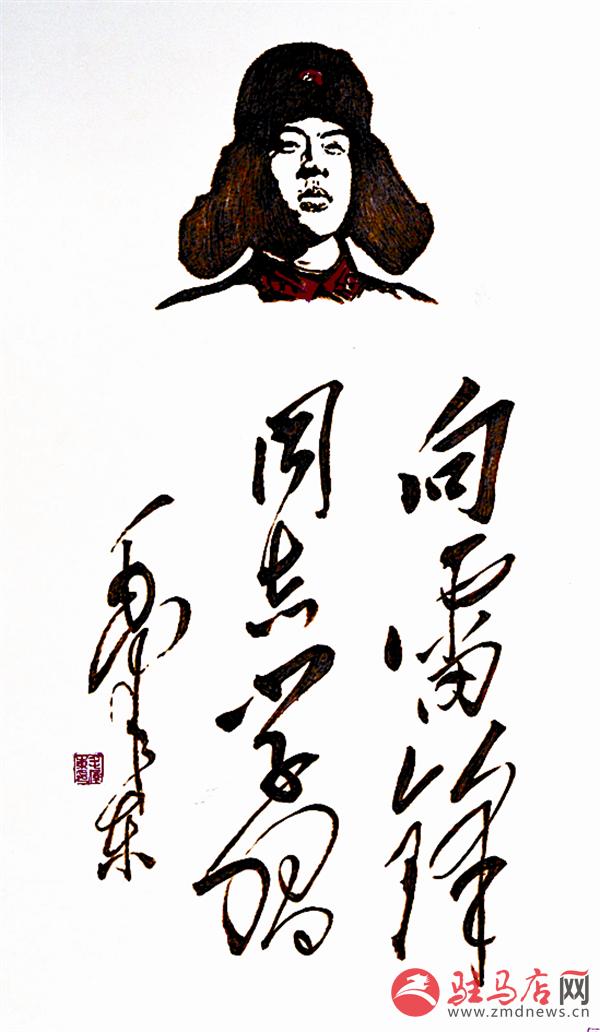 向雷锋
同志学习
毛泽东
驻马店网
www.zmdnews.cn